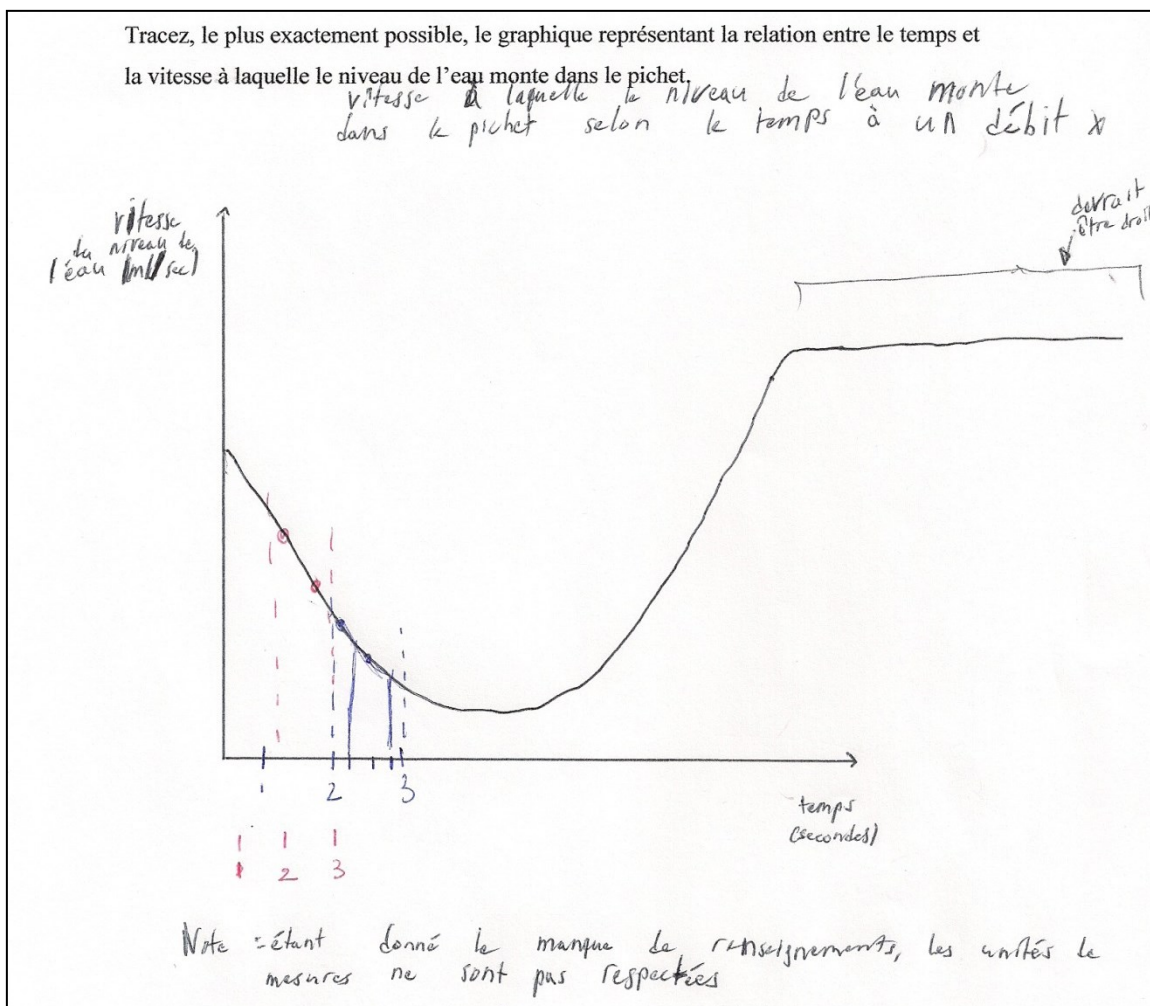 Tracez, le plus exactement possible, le graphique représentant la relation entre le temps et
la vitesse à laquelle le niveau de l'eau monte dans le pichet.
vitesse à laquelle le niveau de l'eau monte
dans le pichet selon le temps à un débit x
devrait
être droit
vitesse
du niveau de
l'eau (ml/sec)
2 3
temps
(secondes)
1 2 3
Note = étant donné le manque de renseignements, les unités de
mesures ne sont pas respectées